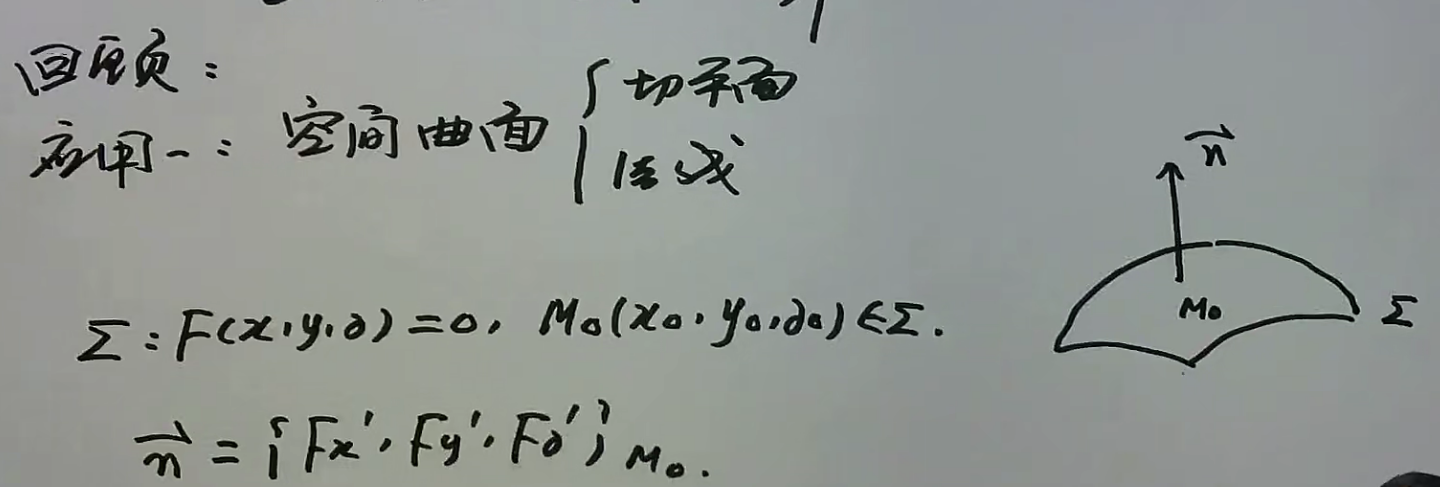 应用一：空间曲面 { 切平面
法线
n⃗
M₀
Σ
Σ：F(x,y,z)=0, M₀(x₀,y₀,z₀)∈Σ.
n⃗ = {Fx′, Fy′, Fz′}M₀.